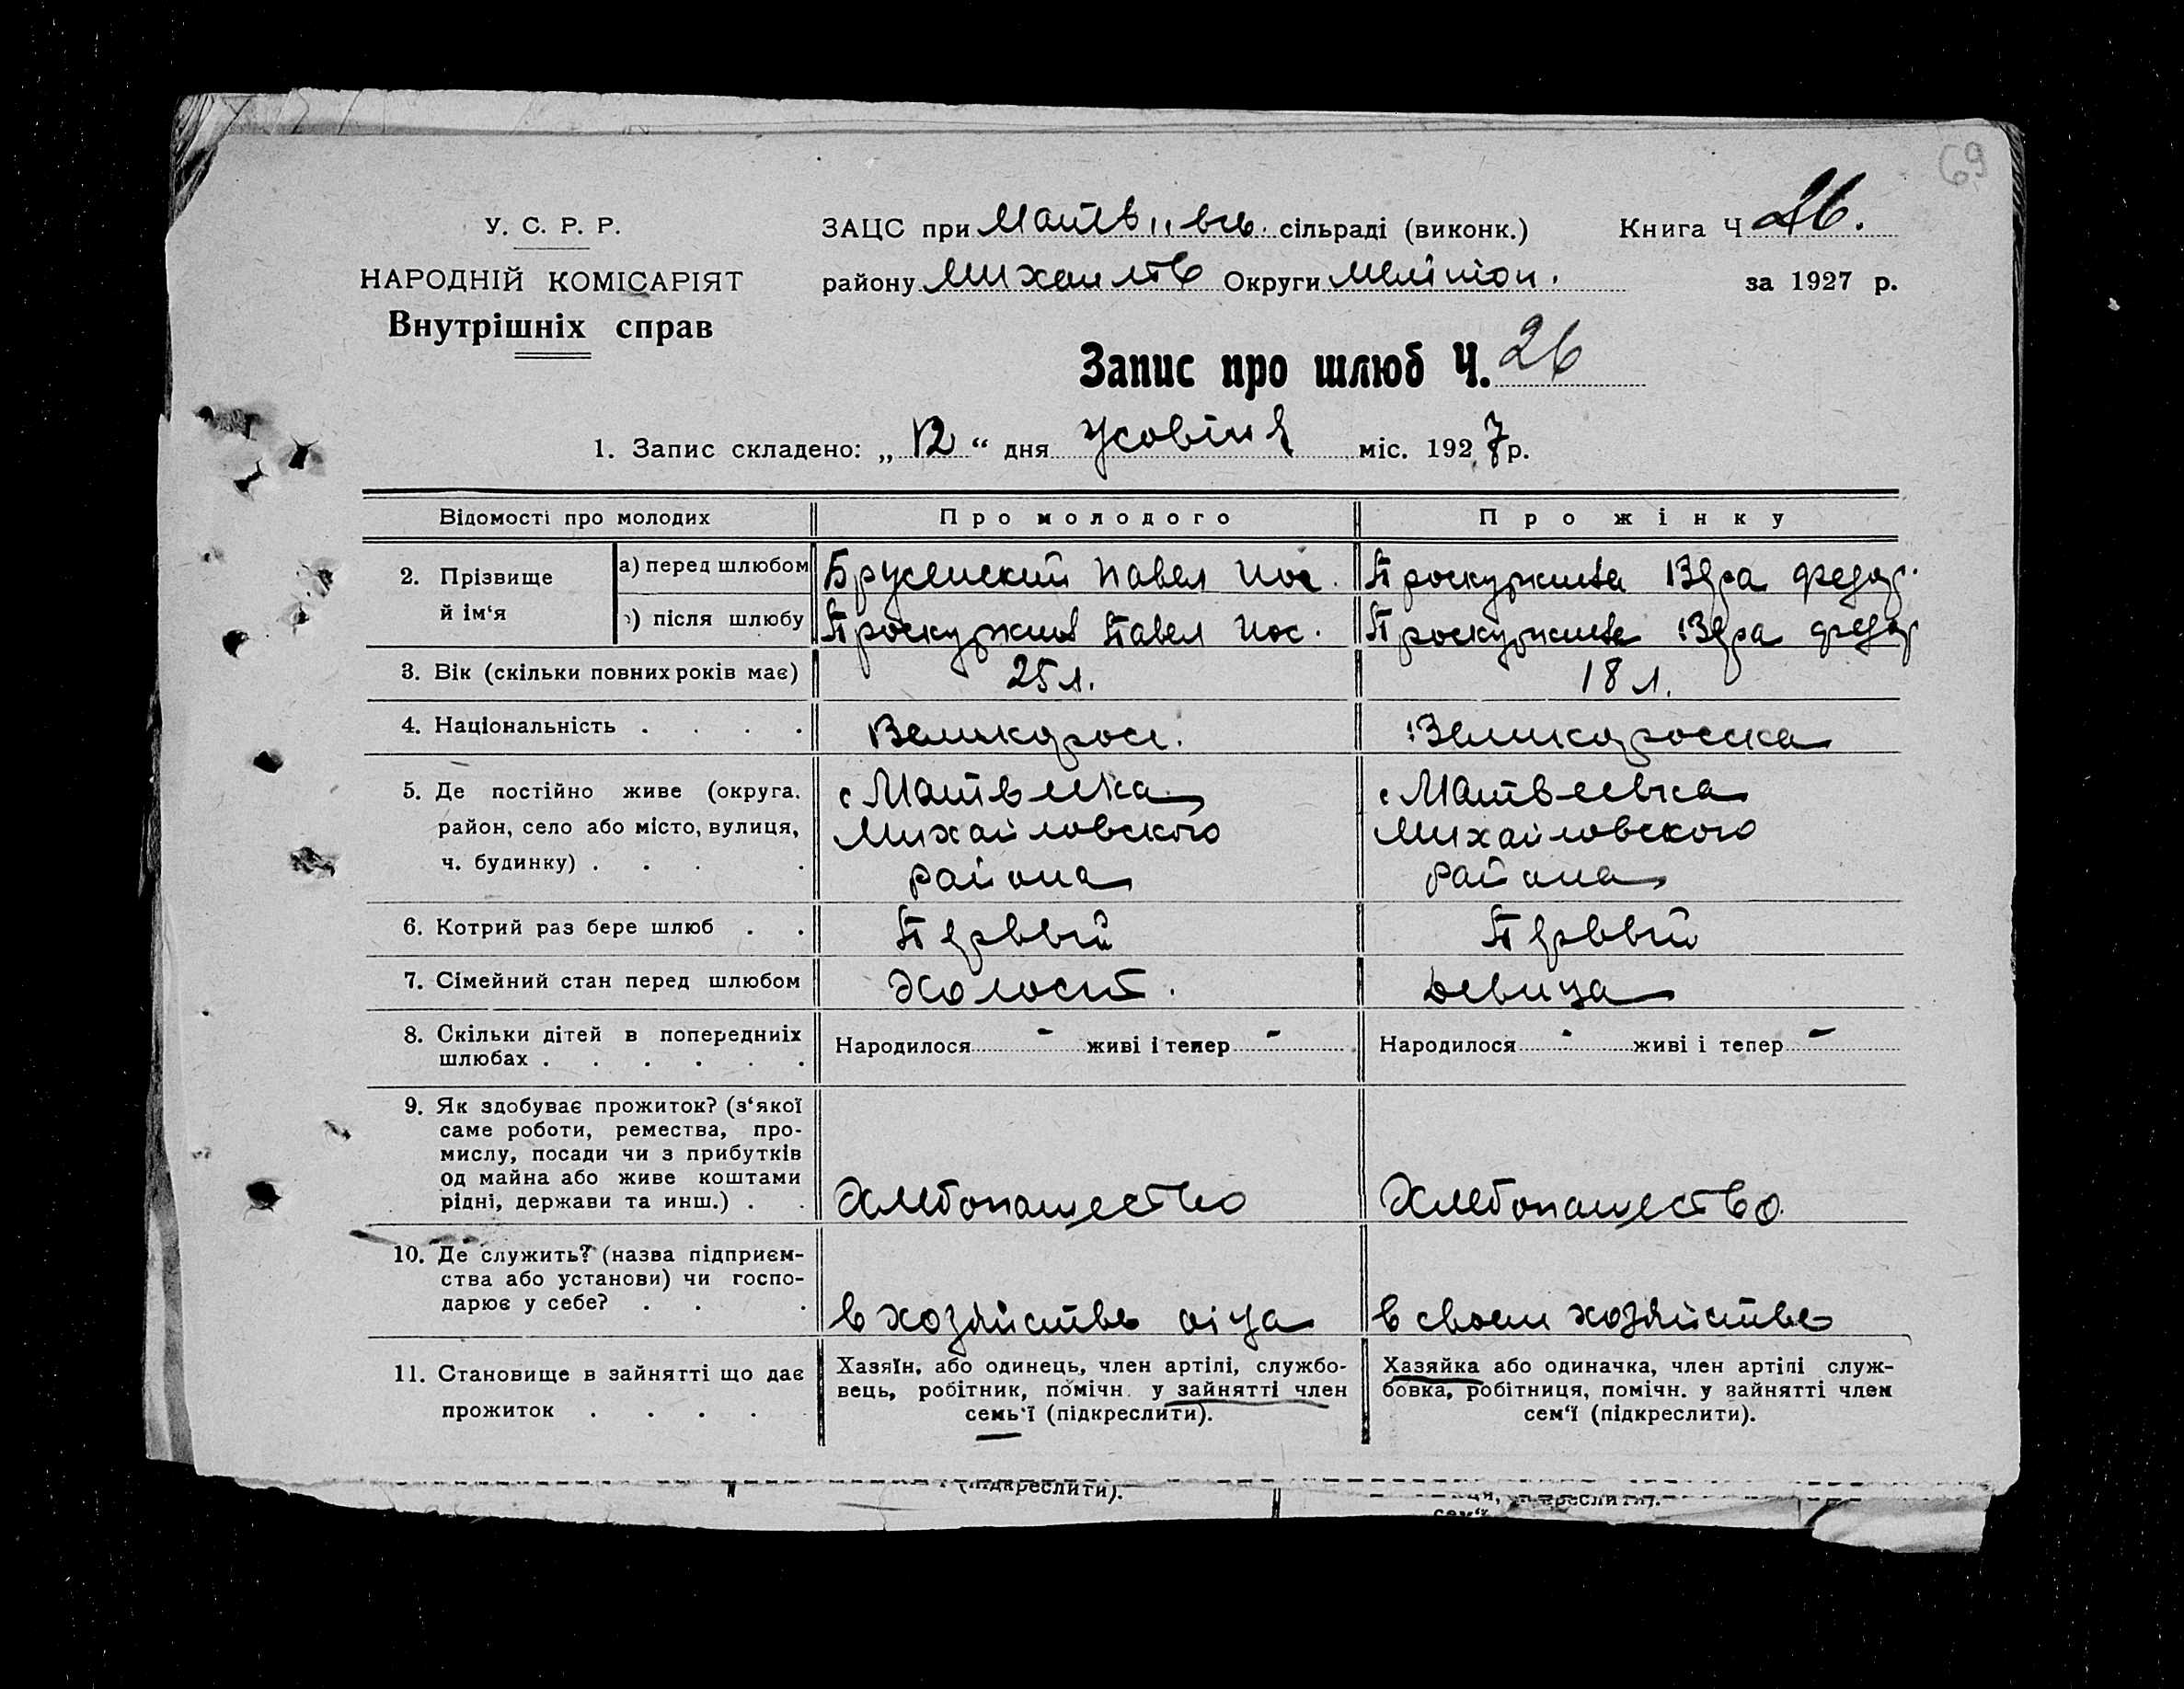 69
У. С. Р. Р.
НАРОДНІЙ КОМІСАРІЯТ
Внутрішніх справ
ЗАЦС при Матвіївс. сільраді (виконк.)
Книга Ч 26.
району Михайлів Округи Меліпіоп.
за 1927 р.
Запис про шлюб Ч. 26
1. Запис складено: „ 12 “ дня міс. 1927 р.
Відомості про молодих
Про молодого
Про жінку
2. Прізвище й ім‘я
а) перед шлюбом
Брусенский Павел Иос.
Проскурнина Вера Федор.
) після шлюбу
Проскурнин Павел Иос.
Проскурнина Вера Федор
3. Вік (скільки повних років має)
25 л.
18 л.
4. Національність . . . .
Великорос.
Великоросска
5. Де постійно живе (округа.
район, село або місто, вулиця,
ч. будинку) . . . .
с Матвеевка
Михайловского
района
с Матвеевка
Михайловского
района
6. Котрий раз бере шлюб . .
Первый
Первый
7. Сімейний стан перед шлюбом
Холост.
девица
8. Скільки дітей в попередниіх
шлюбах . . . . . .
Народилося - живі і тепер -
Народилося - живі і тепер -
9. Як здобуває прожиток? (з‘якої
саме роботи, ремества, про-
мислу, посади чи з прибутків
од майна або живе коштами
рідні, держави та инш.) . .
Хлебопашество
Хлебопашество
10. Де служить? (назва підприєм-
ства або установи) чи госпо-
дарює у себе? . . .
в хозяйстве отца
в своем хозяйстве
11. Становище в зайнятті що дає
прожиток . . . .
Хазяїн, або одинець, член артілі, службо-
вець, робітник, помічн. у зайнятті член
семь‘ї (підкреслити).
Хазяйка або одиначка, член артілі служ-
бовка, робітниця, помічн. у зайнятті член
сем‘ї (підкреслити).
(підкреслити).
сем‘ї